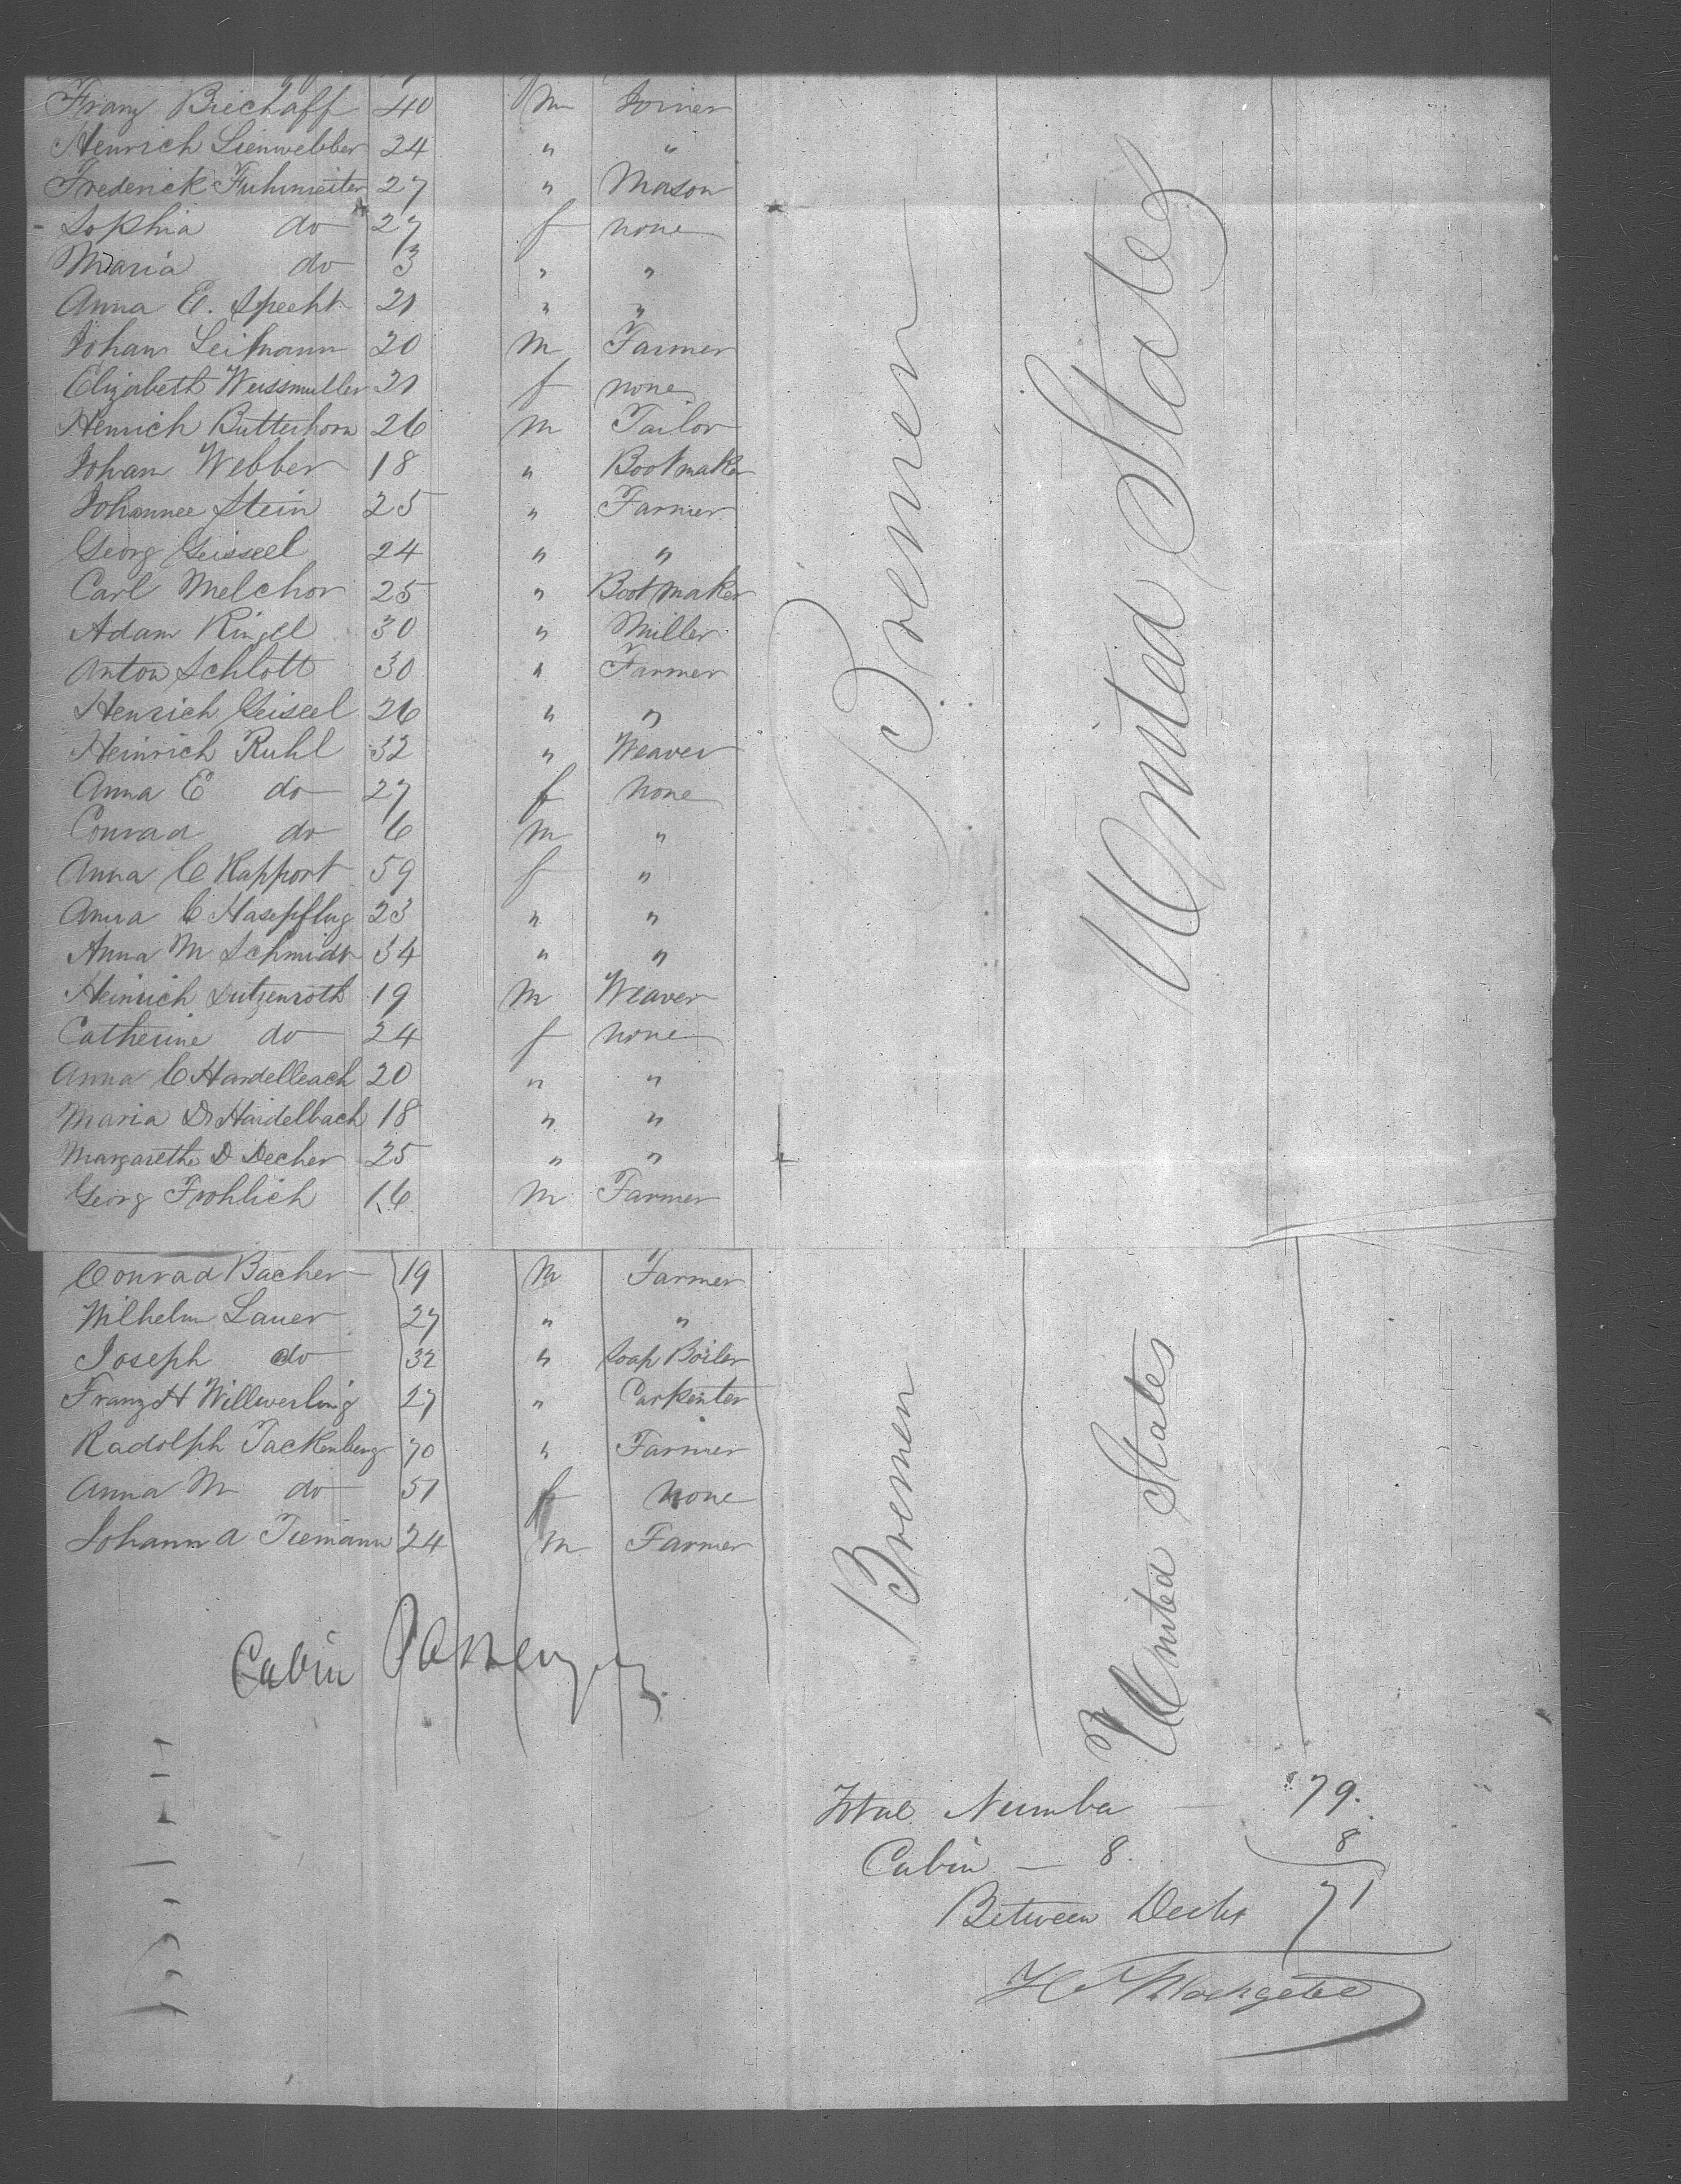 Franz Biechaff 40 M Joiner
Henrich Lienwebber 24 " "
Frederick Fuhrmeiter 27 " Mason
Sophia do 27 f none
Maria do 3 " "
Anna E. Specht 21 " "
Johan Leitmann 20 M Farmer
Elizabeth Weissmuller 21 f none
Henrich Butterhorn 26 M Tailor
Johan Webber 18 " Bootmaker
Johannee Stein 25 " Farmer
Georg Geisseel 24 " "
Carl Melchor 25 " Bootmaker
Adam Ringel 30 " Miller
Anton Schlott 30 " Farmer
Henrich Geiseel 26 " "
Heinrich Ruhl 32 " Weaver
Anna E do 27 f none
Conrad do 6 M "
Anna C Rapport 59 f "
Anna C Hasepflug 23 " "
Anna M Schmidt 34 " "
Heinrich Lutzenroth 19 M Weaver
Catherine do 24 f none
Anna C Hardelleach 20 " "
Maria D Haidelbach 18 " "
Margarethe D Decher 25 " "
Georg Frohlich 16 M Farmer
Bremen
United States
Conrad Bacher 19 M Farmer
Wilhelm Lauer 27 " "
Joseph do 32 " Soap Boiler
Franz H Willwerling 27 " Carpenter
Radolph Tackenberg 70 " Farmer
Anna M do 51 f none
Johann A Tiemann 24 M Farmer
Bremen
United States
Cabin Passengers
Total Number — 79.
Cabin — 8. 8
Between Decks 71